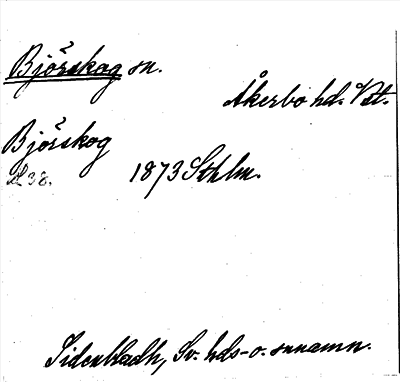 Björskog sn.
Åkerbo hd. Vstm.
Björskog
38. 1873 Sthlm.
Sidenbladh, Sv. hds- o. snnamn.